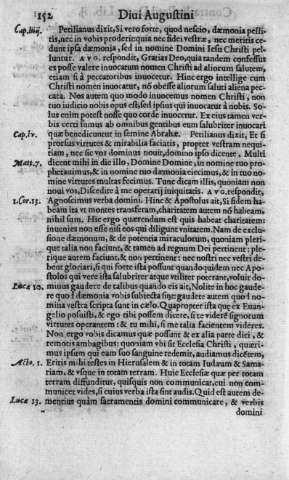 152 Diui Augustini
Cap. liiij. Petilianus dixit, Si vero forte, quod nescio, dæmonia pellitis, nec in vobis proderit: quia nec fidei vestræ, nec meritis cedunt ipsa dæmonia, sed in nomine Domini Iesu Christi pelluntur. AVG. respondit, Gratias Deo, quia tandem confessus es posse valere inuocatum nomen Christi ad aliorum salutem, etiam si à peccatoribus inuocetur. Hinc ergo intellige cum Christi nomen inuocatur, nō obesse aliorum saluti aliena peccata. Nos autem quo modo inuocemus nomen Christi, non tuo iudicio nobis opus est, sed ipsius qui inuocatur à nobis. Solus enim potest nosse quo corde inuocemur. Ex eius tamen verbis certi sumus ab omnibus gentibus eum salubriter inuocari
Cap. lv. quæ benedicuntur in semine Abrahæ. Petilianus dixit, Et si prorsus virtutes & mirabilia faciatis, propter vestram nequitiam, nec sic vos dominus nouit, domino ipso dicente, Multi
Matt. 7. dicent mihi in die illo, Domine Domine, in nomine tuo prophetauimus, & in nomine tuo dæmonia eiecimus, & in tuo nomine virtutes multas fecimus. Tunc dicam illis, quoniam non noui vos, Discedite à me operarij iniquitatis. AVG. respondit,
1. Cor. 13. Agnoscimus verba domini. Hinc & Apostolus ait, Si fidem habeam ita vt montes transferam, charitatem autem nō habeam, nihil sum. Hic ergo quærendum est quis habeat charitatem: inuenies non esse nisi eos qui diligunt vnitatem. Nam de exclusione dæmonum, & de potentia miraculorum, quoniam plerique talia non faciunt, & tamen ad regnum Dei pertinent: plerique autem faciunt, & non pertinent: nec nostri nec vestri debent gloriari, si qui forte ista possunt: quandoquidem nec Apostolos qui vere ista salubriter atque vtiliter poterant, voluit dominus
Lucæ 10. gaudere de talibus quando eis ait, Nolite in hoc gaudere quod dæmonia vobis subiecta sint: gaudete autem quod nomina vestra scripta sunt in cælo. Quapropter ista quæ ex Euangelio posuisti, & ego tibi possem dicere, si te viderē signorum virtutes operantem: & tu mihi, si me talia facientem videres. Non ergo vobis dicamus quæ possunt & ex alia parte dici, & remotis ambagibus: quoniam vbi sit Ecclesia Christi, quærimus ipsum qui eam suo sanguine redemit, audiamus dicētem,
Acto. 1. Eritis mihi testes in Hierusalem & in totam Iudæam & Samariam, & vsque in totam terram. Huic Ecclesiæ quæ per totam terram diffunditur, quisquis non communicat, cui non communicet vides, si cuius verba ista sint audis. Quid est autem
Lucæ 23. dementius quàm sacramentis domini communicare, & verbis
domini